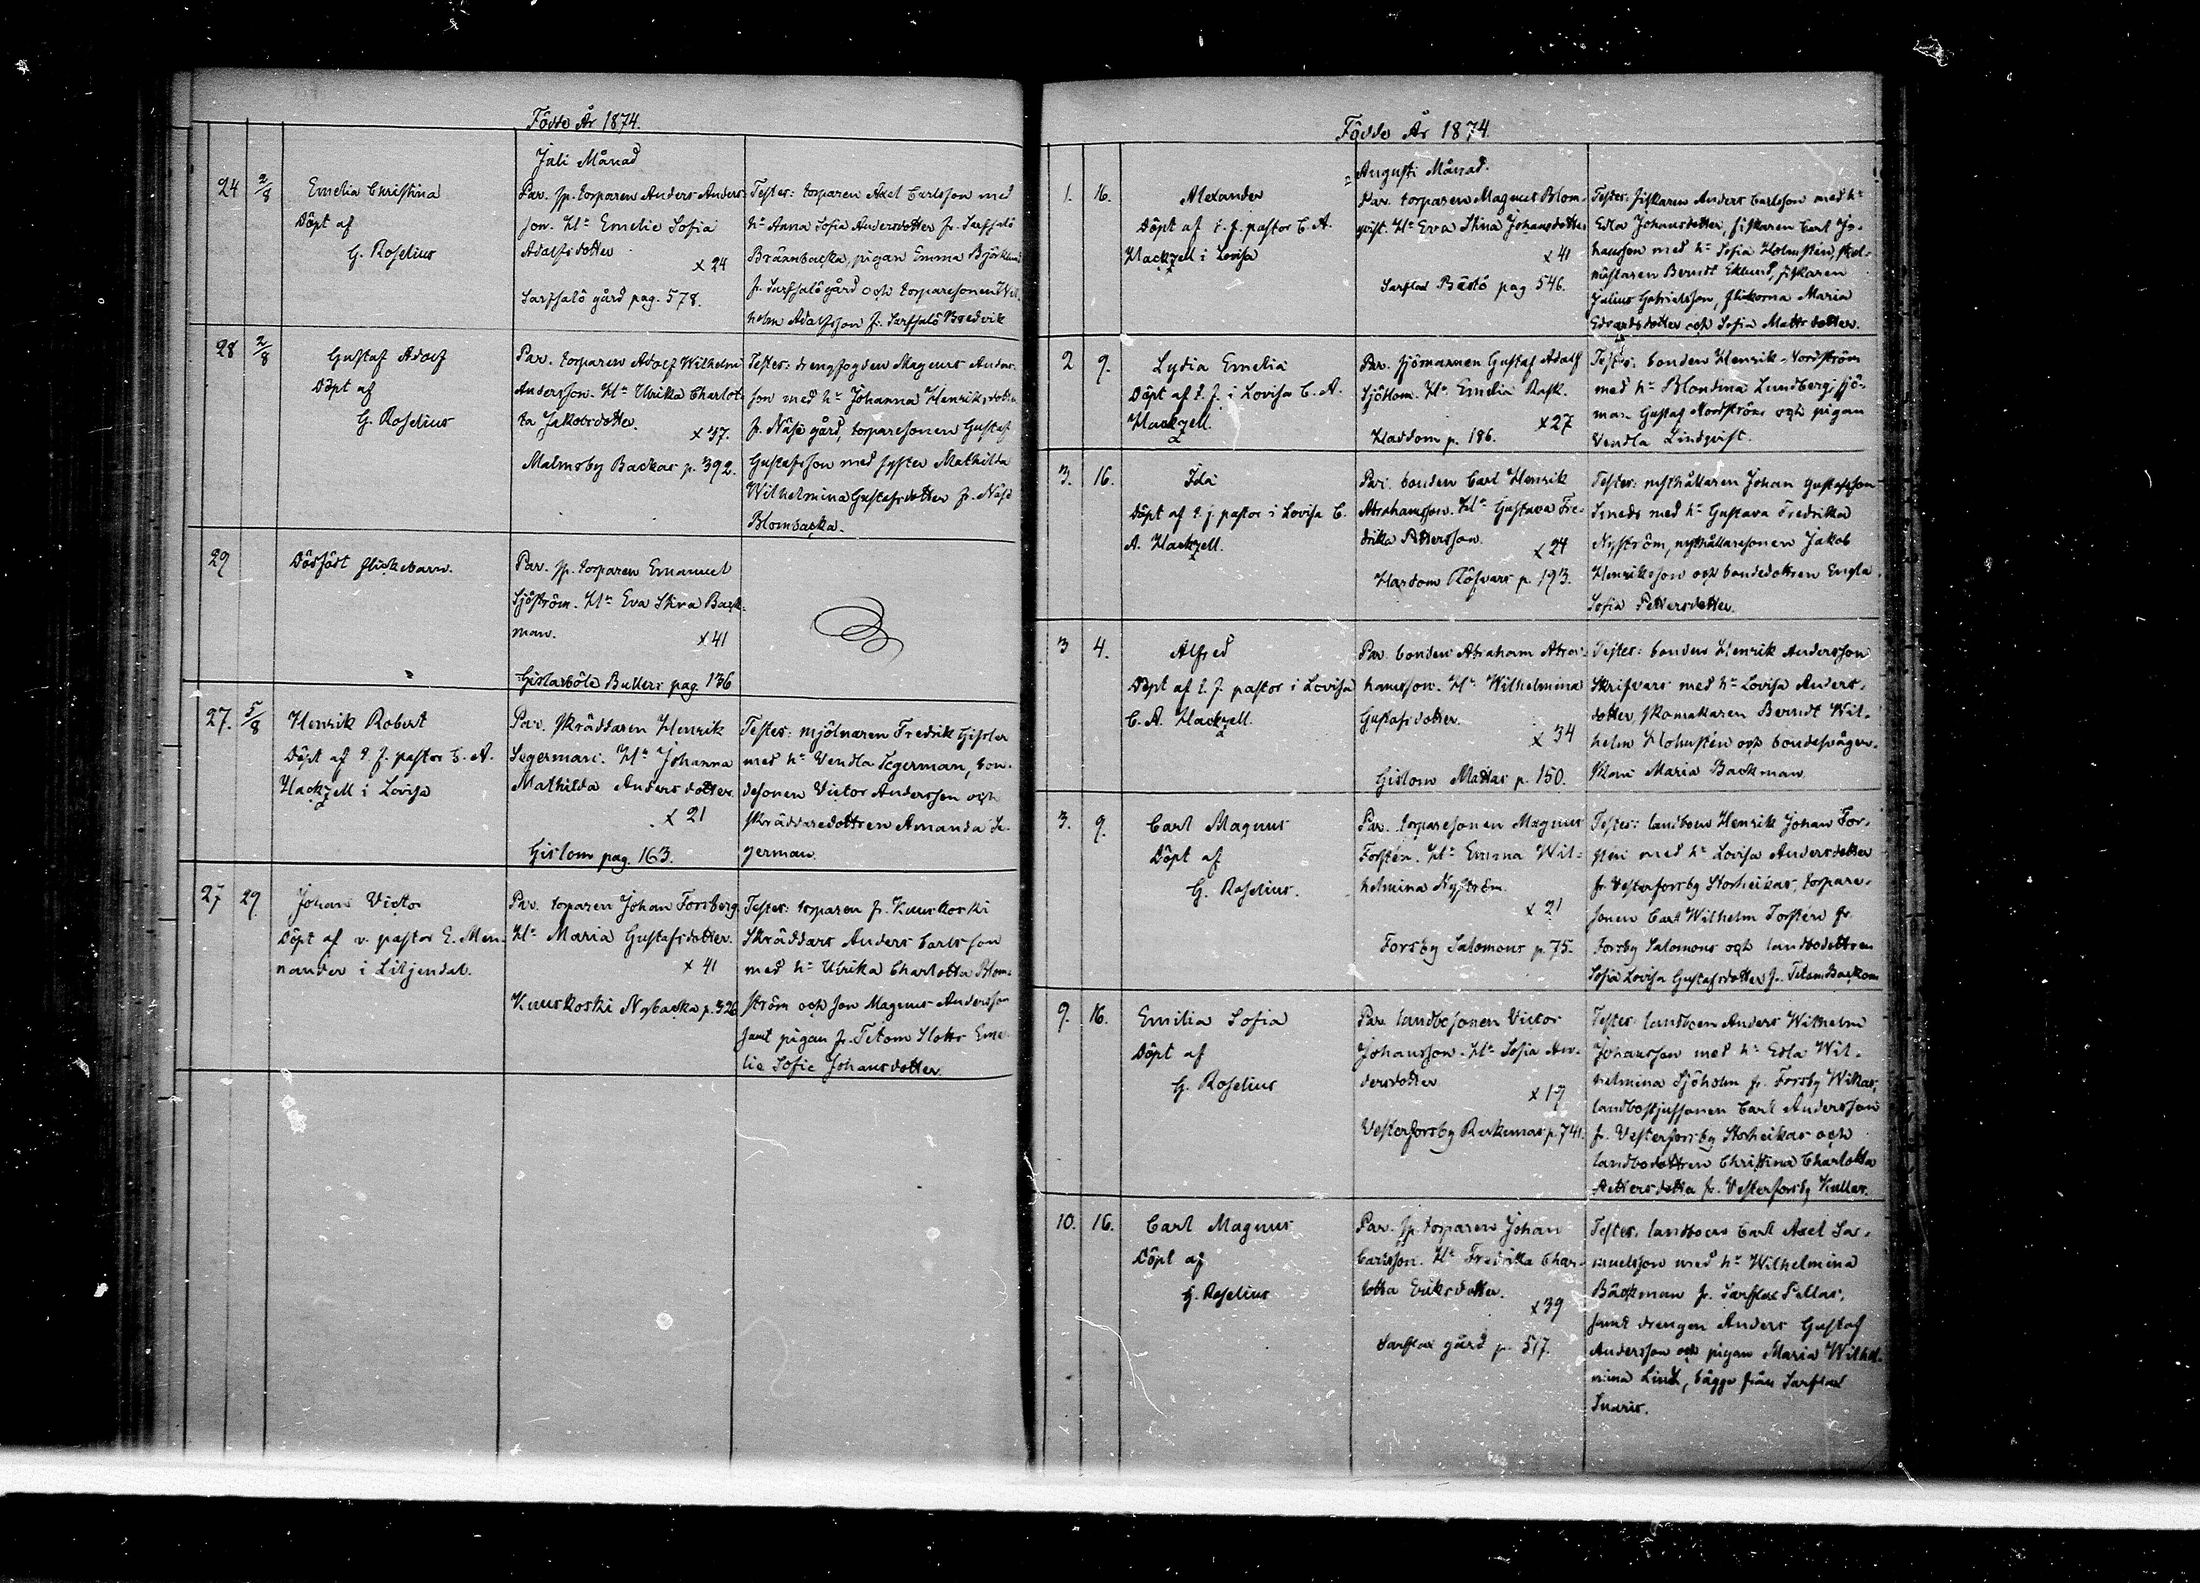 Födde År 1874.
Juli Månad
24 2/8 Emelia Christina
Döpt af
G. Roselius
Par. sp. torparen Anders Anders-
son. H:u Emelie Sofia
Adolfsdotter
x 24
Sarfsalö gård pag. 578.
Testes: torparen Axel Carlsson med
h:u Anna Sofia Andersdotter fr. Sarfsalö
Brännbacka, pigan Emma Björklund
fr. Sarfsalö gård och torparesonen Wil-
helm Adolfsson fr. Sarfsalö Bredvik
28 2/8 Gustaf Adolf
Döpt af
G. Roselius
Par. torparen Adolf Wilhelm
Andersson. H:u Ulrika Charlot-
ta Jakobsdotter.
x 37.
Malmsby Backas p. 392.
Testes: drengfogden Magnus Anders-
son med h:u Johanna Henriksdotter
fr. Näse gård, torparesonen Gustaf
Gustafsson med syster Mathilda
Wilhelmina Gustafsdotter fr. Näse
Blombacka.
29 Dödfödt flickebarn.
Par. sp. torparen Emanuel
Sjöström. H:u Eva Stina Back-
man.
x 41
Gislarböle Bullers pag. 136
27. 5/8 Henrik Robert
Döpt af t. f. pastor C. A.
Hackzell i Lovisa
Par. skräddaren Henrik
Segerman. H:u Johanna
Mathilda Andersdotter
x 21
Gislom pag. 163.
Testes: mjölnaren Fredrik Gisler
med h:u Vendla Segerman, bon-
desonen Victor Andersson och
skräddaredottren Amanda Se-
german.
27 29 Johan Victor
Döpt af v. pastor E. Men-
nander i Liljendal.
Par. torparen Johan Forsberg.
H:u Maria Gustafsdotter.
x 41
Kuuskoski Nybacka p. 326
Testes: torparen fr. Kuuskoski
Skräddars Anders Carlsson
med h:u Ulrika Charlotta Blom-
ström och son Magnus Andersson
samt pigan fr. Tetom Slotts Eme-
lie Sofie Johansdotter
Födde År 1874.
Augusti Månad.
1. 16. Alexander
Döpt af t. f. pastor C. A.
Hackzell i Lovisa
Par. torparen Magnus Blom-
qvist. H:u Eva Stina Johansdotter
x 41
Sarflax Båstö pag 546.
Testes: fiskaren Anders Carlsson med h:u
Edla Johansdotter, fiskaren Carl Jo-
hansson med h:u Sofia Holmstén, skol-
mästaren Berndt Eklund, fiskaren
Julius Gabrielsson, flickorna Maria
Edvardsdotter och Sofia Mattsdotter.
2 9. Lydia Emelia
Döpt af t. f. i Lovisa C. A.
Hackzell.
Par. sjömannen Gustaf Adolf
Sjöblom. H:u Emelia Rask.
x 27
Haddom p. 186.
Testes: bonden Henrik Nordström
med h:u Blondina Lundberg, sjö-
man Gustaf Nordström och pigan
Vendla Lindqvist.
3. 16. Ida
Döpt af t. f. pastor i Lovisa C.
A. Hackzell.
Par. bonden Carl Henrik
Abrahamsson. H:u Gustava Fre-
drika Pettersson.
x 24
Hardom Röfvars p. 193.
Testes: rusthållaren Johan Gustafsson
Smeds med h:u Gustava Fredrika
Nyström, rusthållaresonen Jakob
Henriksson och bondedottren Engla
Sofia Pettersdotter.
3 4. Alfred
Döpt af t. f. pastor i Lovisa
C. A. Hackzell.
Par. bonden Abraham Abra-
hamsson. H:u Wilhelmina
Gustafsdotter.
x 34
Gislom Mattas p. 150.
Testes: bonden Henrik Andersson
Skrifvars med h:u Lovisa Anders-
dotter, skomakaren Berndt Wil-
helm Holmstén och bondesvåger-
skan Maria Backman.
3. 9. Carl Magnus
Döpt af
G. Roselius.
Par. torparesonen Magnus
Forstén. H:u Emma Wil-
helmina Nyström.
x 21
Forsby Salomons p. 75.
Testes: landboen Henrik Johan For-
stén med h:u Lovisa Andersdotter
fr. Vesterforsby Storheikas, torpare-
sonen Carl Wilhelm Forstén fr.
Forsby Salomons och landbodottren
Sofia Lovisa Gustafsdotter fr. Tetom Backom
9. 16. Emilia Sofia
Döpt af
G. Roselius
Par. landbosonen Victor
Johansson. H:u Sofia An-
dersdotter
x 19
Vesterforsby p. 741.
Testes: landboen Anders Wilhelm
Johansson med h:u Edla Wil-
helmina Sjöholm fr. Forsby Wikas,
landbostjufsonen Carl Andersson
fr. Vesterforsby Storheikas och
landbodottren Christina Charlotta
Pettersdotter fr. Vesterforsby Kullas.
10. 16. Carl Magnus
Döpt af
G. Roselius
Par. sp. torparen Johan
Carlsson. H:u Fredrika Char-
lotta Eriksdotter.
x 39
Sarflax gård p. 517.
Testes: landboen Carl Axel Sa-
muelsson med h:u Wilhelmina
Bäckman fr. Sarflax Pellas,
samt drengen Anders Gustaf
Andersson och pigan Maria Wilhel-
mina Lind, bägge från Sarflax